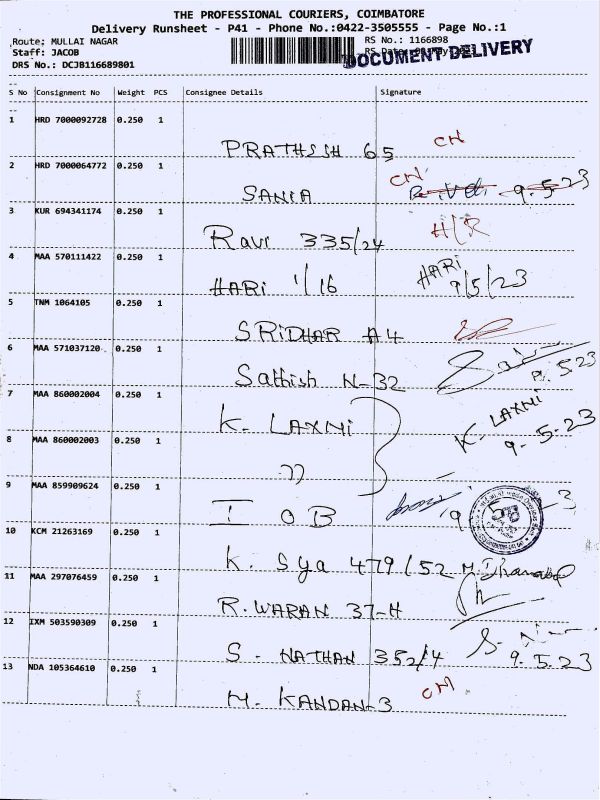 THE PROFESSIONAL COURIERS, COIMBATORE
Delivery Runsheet - P41 - Phone No.:0422-3505555 - Page No.:1
Route: MULLAI NAGAR RS No.: 1166898
Staff: JACOB RS Date:
DOCUMENT DELIVERY
DRS No.: DCJB116689801
S No Consignment No Weight PCS Consignee Details Signature
1 HRD 7000092728 0.250 1
PRATHISH 65 CN
2 HRD 7000064772 0.250 1
SANIA CN 9.5.23
3 KUR 694341174 0.250 1
Ravi 335/24 H/R
4 MAA 570111422 0.250 1
HARI 1/16 HARI 9/5/23
5 TNM 1064105 0.250 1
SRIDHAR A4
6 MAA 571037120 0.250 1
Sathish N-32 9.5.23
7 MAA 860002004 0.250 1
K. LAXNI K. LAXNI
8 MAA 860002003 0.250 1 9-5.23
"
9 MAA 859909624 0.250 1
IOB 9 3
10 KCM 21263169 0.250 1
K. Sya 479/52
11 MAA 297076459 0.250 1
R. WARAN 37-H
12 IXM 503590309 0.250 1
S. NATHAN 352/4 9.5.23
13 NDA 105364610 0.250 1
M. KANDAN-3 CM